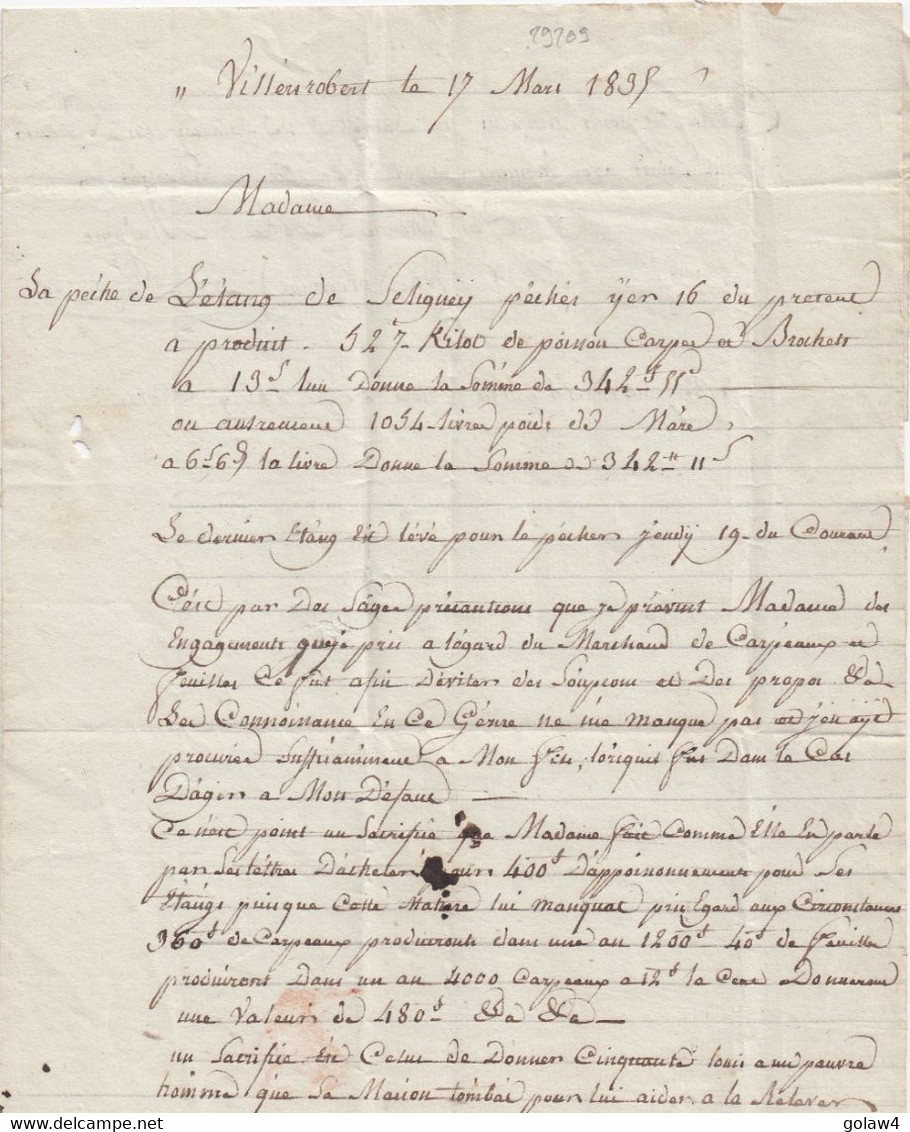 29209
" Villeurobert le 17 Mars 1835
Madame
La pêche de L'étang de Seligneÿ péchés ÿer 16 du present
a produit . 527 Kilot de poisson Carpes et Brochets
a 13s lun Donne la Somme de 342# 11s
ou autrement 1054 livres poids de Mare ,
a 6s 6d la livre Donne la Somme de 342" 11s
Le dernier Etang Est levé pour le pecher jeudÿ 19 du Courant
C'est par Des Sages précautions que je prévint Madame des
Engagements que je pris a légard du Marchand de Carpeaux et
feuilles Ce fut afin D'éviter des Soupcons et Des propos &a
Les Connoisance En Ce Génre ne me manque pas et j'en aÿt
procurée Suffisamment a Mon fils, lorsquis fut Dans le Cas
D'agir a Mon Défaut
Ce n'est point un Sacrifie que Madame fait Comme Elle En parle
par Ses lettres D'acheter pour 400# D'appoisonnement pour Ses
Etangs puisque Cette Matiere lui manquat pris Egard aux Circonstances
360# de Carpeaux produiront dans une an 1200# 40# de feuilles
produiront Dans un an 4000 Carpeaux a 12# le Cent Donneront
une Valeur de 480# &a &a
un Sacrifie Est Celui de Donner Cinquante louis a un pauvre
homme que Sa Maison tombée pour lui aider a la Relever
www.delcampe.net
golaw4